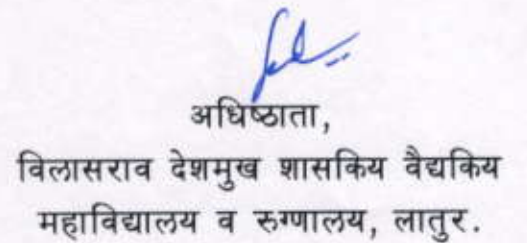 अधिष्ठाता,
विलासराव देशमुख शासकिय वैद्यकिय
महाविद्यालय व रुग्णालय, लातुर.